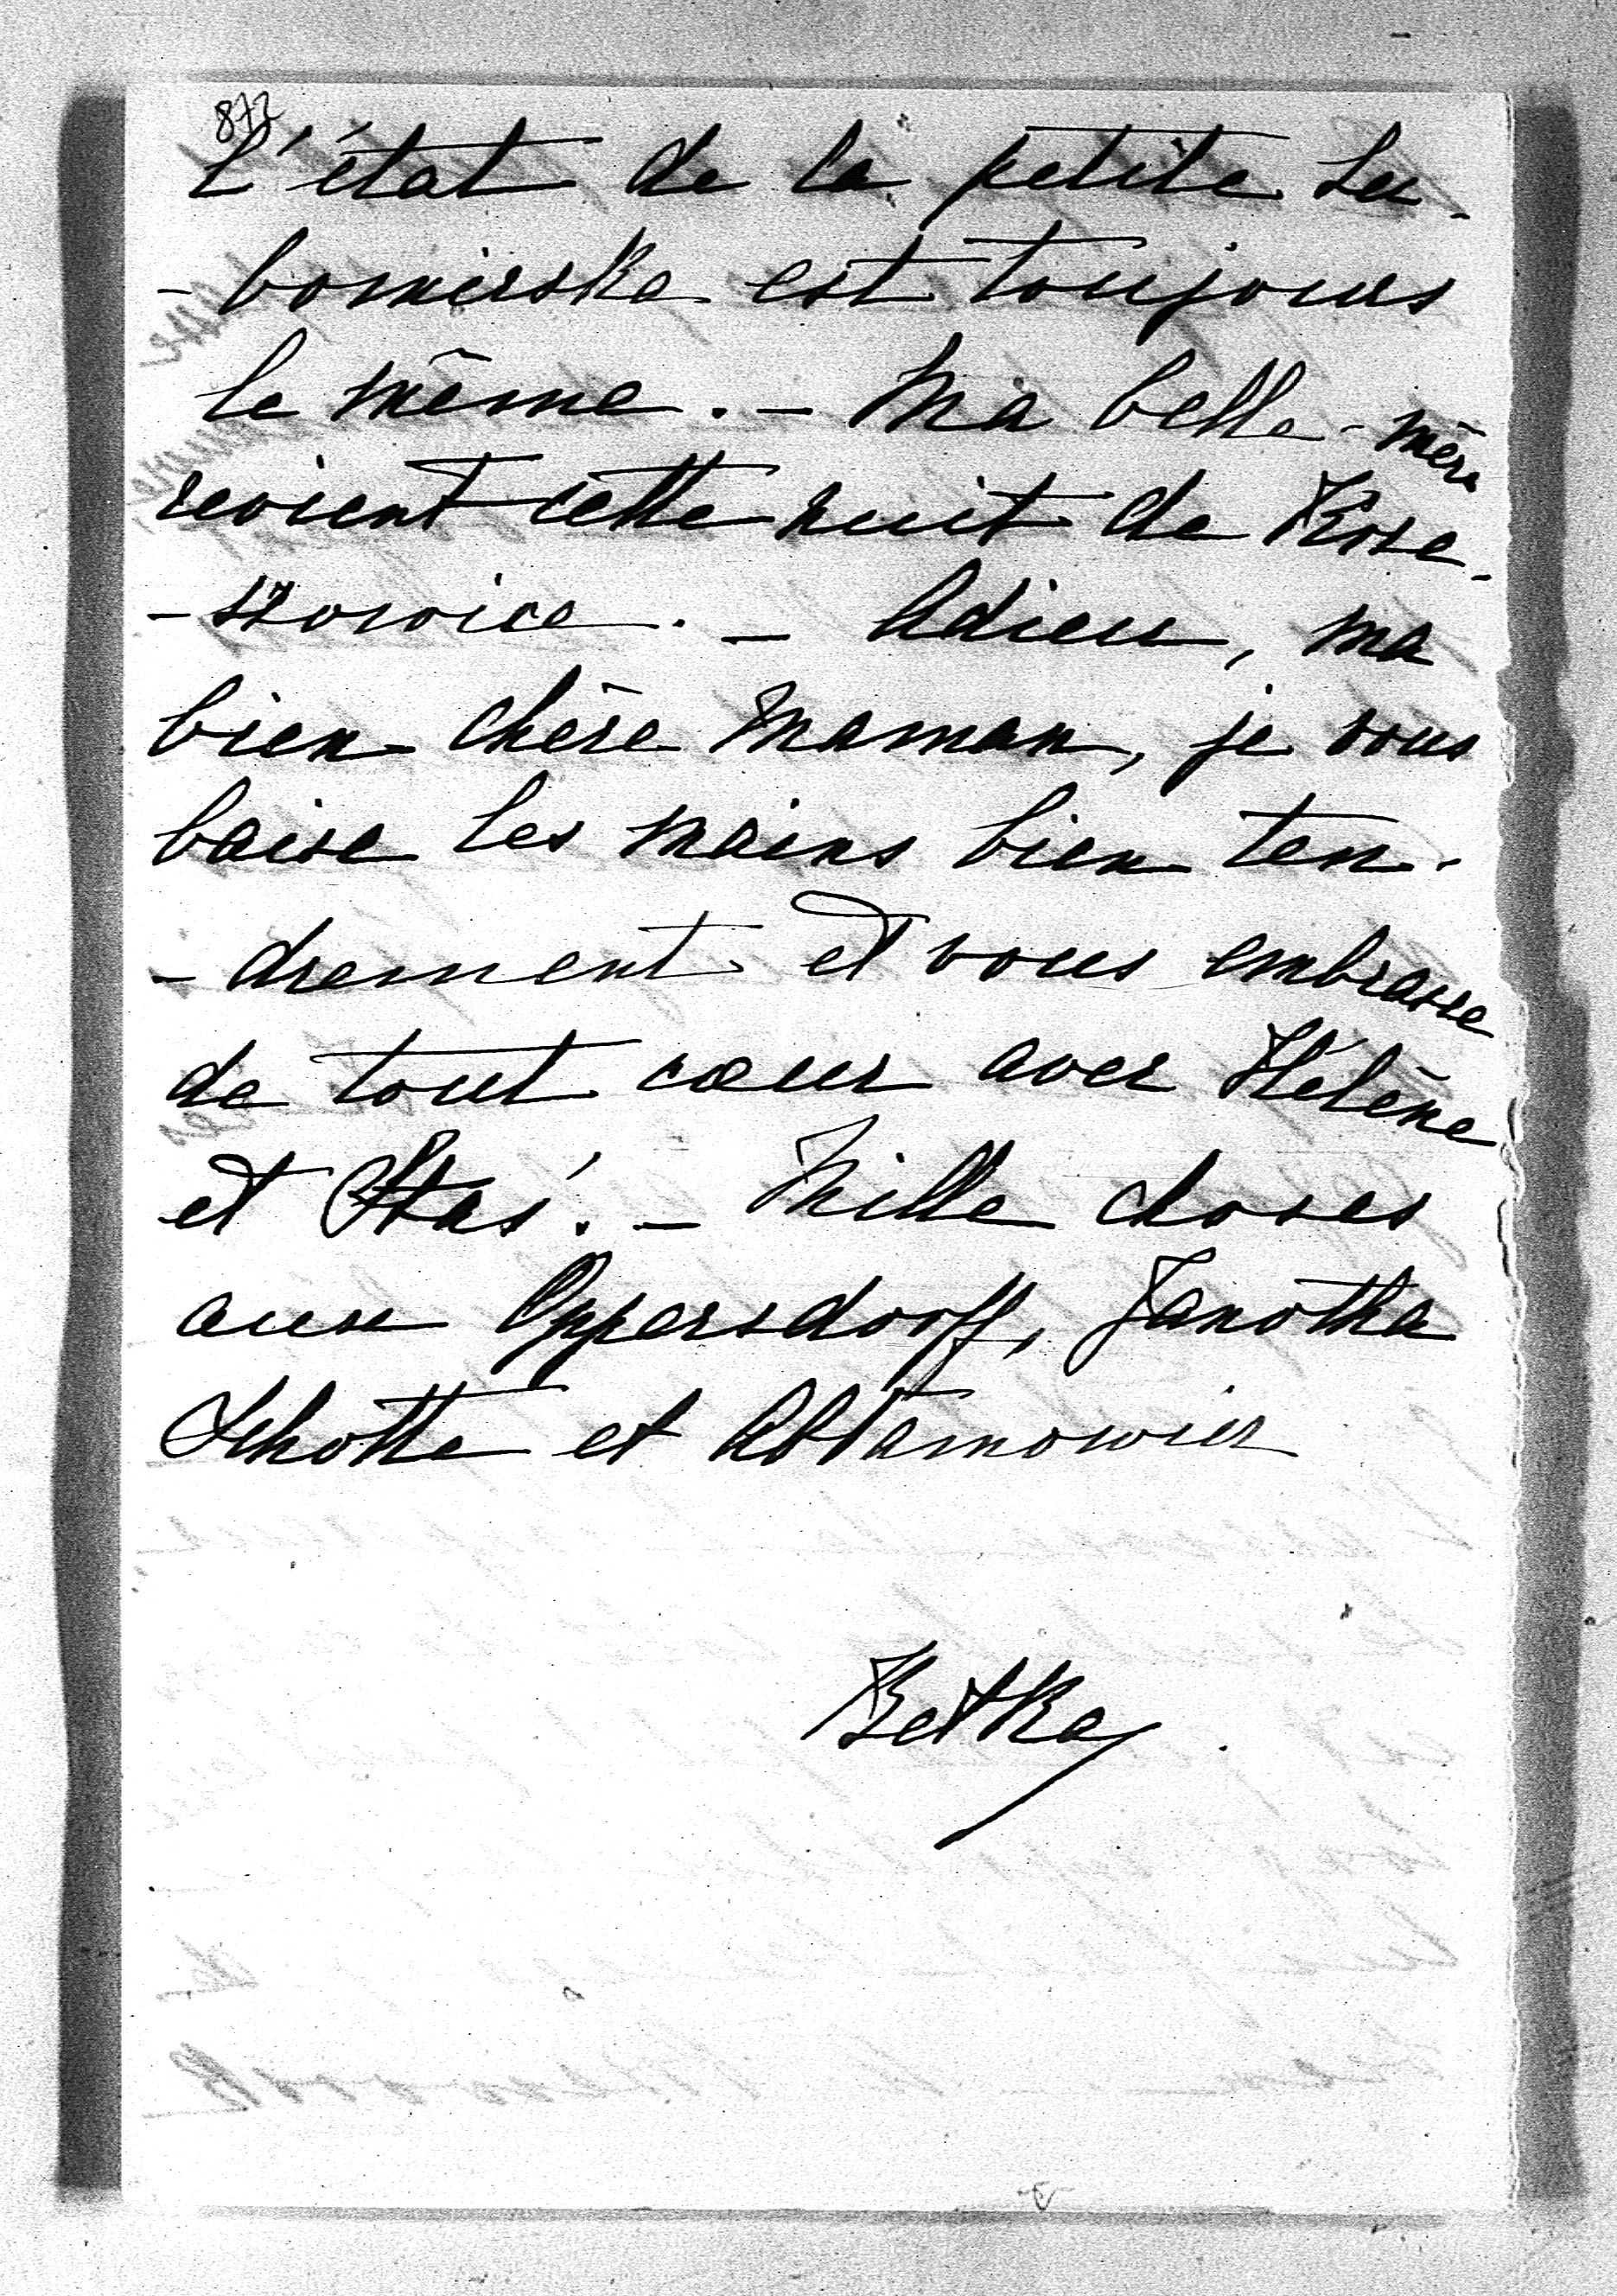 872
L'état de la petite Lu-
-bomirska est toujours
le même. - Ma belle-mère
revient cette nuit de Krze-
-szowice. - Adieu, ma
bien chère Maman, je vous
baise les mains bien ten-
-drement et vous embrasse
de tout cœur avec Hélène
et Staś. - Mille choses
aux Oppersdorff, Janotha
Schotte et Abramowicz
Betka.